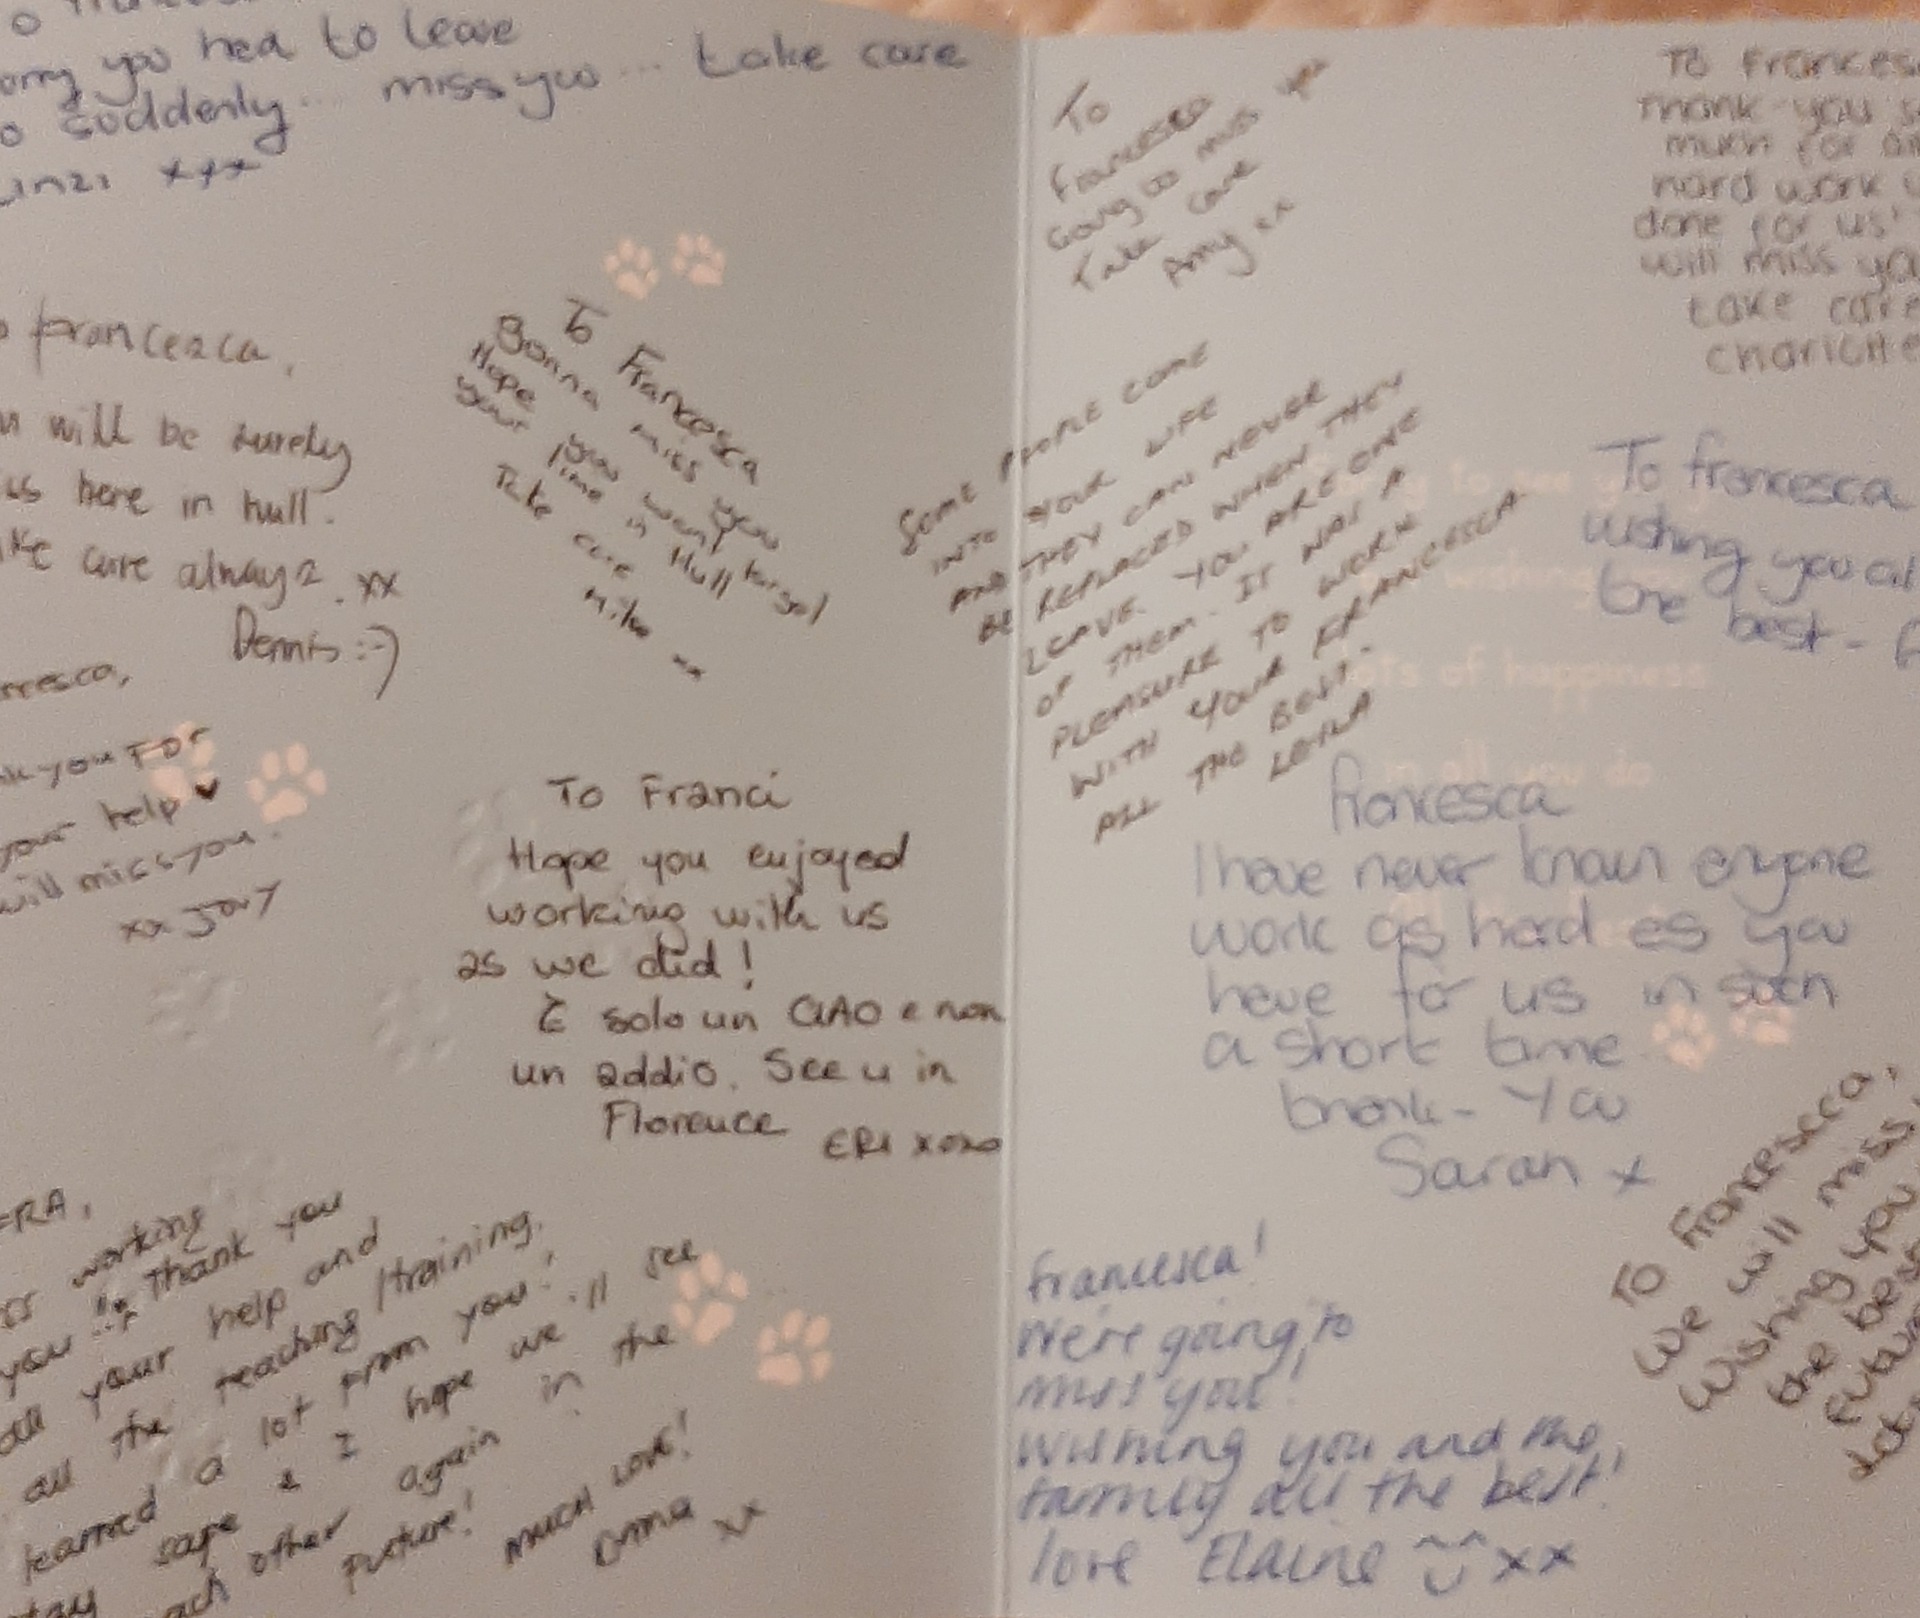 you had to leave
suddenly... miss you... take care
xxx
Francesca,
will be surely
us here in hull.
care always. xx
Dennis :-)
you For
your help ♥
will miss you.
xx Jory
To Francesca
Gonna miss you
Hope you wont forget
your time in Hull
Take care
Mike xx
To Franci
Hope you enjoyed
working with us
as we did!
È solo un CIAO e non
un addio. See u in
Florence
ERI xoxo
FRA,
working
you Thank you
all your help and
all the teaching/training.
learned a lot from you!
safe & I hope we'll see
each other again in the
future!
much love!
Emma xx
To
Francesca
Going to miss you
Take care
Amy xx
SOME PEOPLE COME
INTO YOUR LIFE
AND THEY CAN NEVER
BE REPLACED WHEN THEY
LEAVE. YOU ARE ONE
OF THEM. IT WAS A
PLEASURE TO WORK
WITH YOUR FRANCESCA.
ALL THE BEST.
LEILA
To
thank you
much for
hard work
done for us!
will miss you
take care
To francesca
wishing you all
the best -
wishing
of happiness
in all you do
francesca
I have never known anyone
work as hard as you
have for us in such
a short time
thank-You
Sarah x
francesca!
We're going to
miss you!
Wishing you and the
family all the best!
love Elaine xx
To Francescca,
we will miss
Wishing you
the best